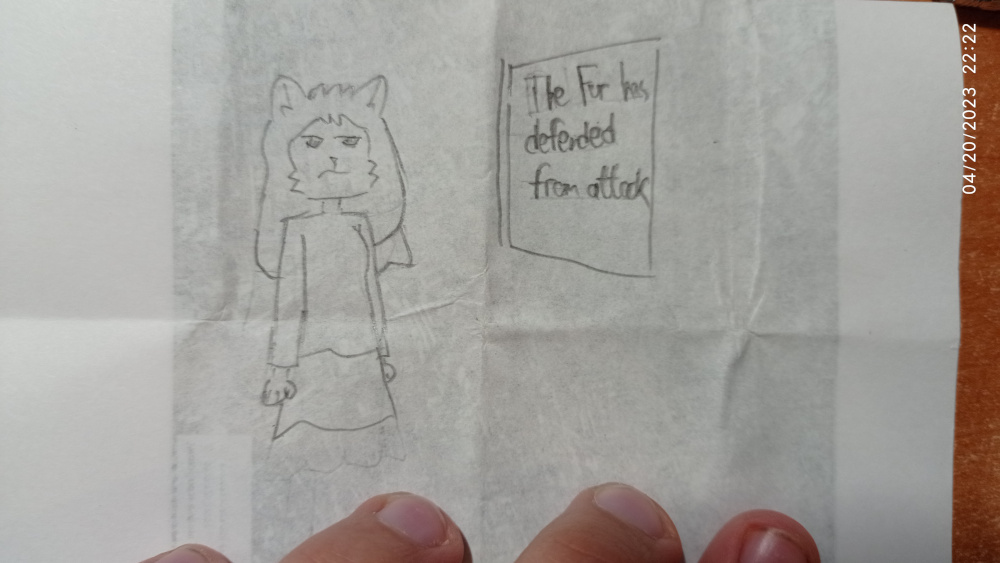 The Fur has
defended
from attack
04/20/2023 22:22